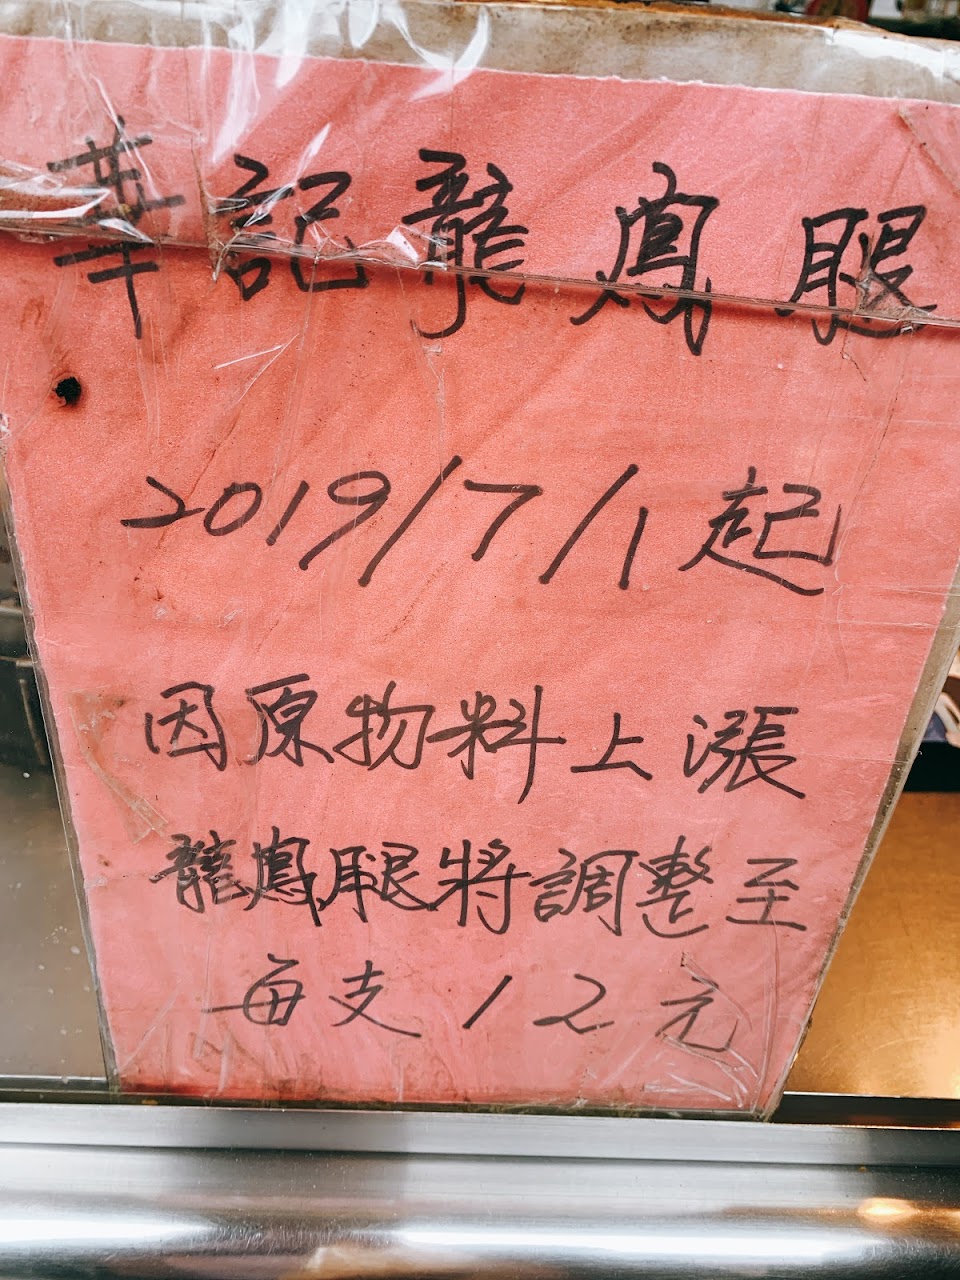 華記龍鳳腿
2019/7/1起
因原物料上漲
龍鳳腿將調整至
每支12元